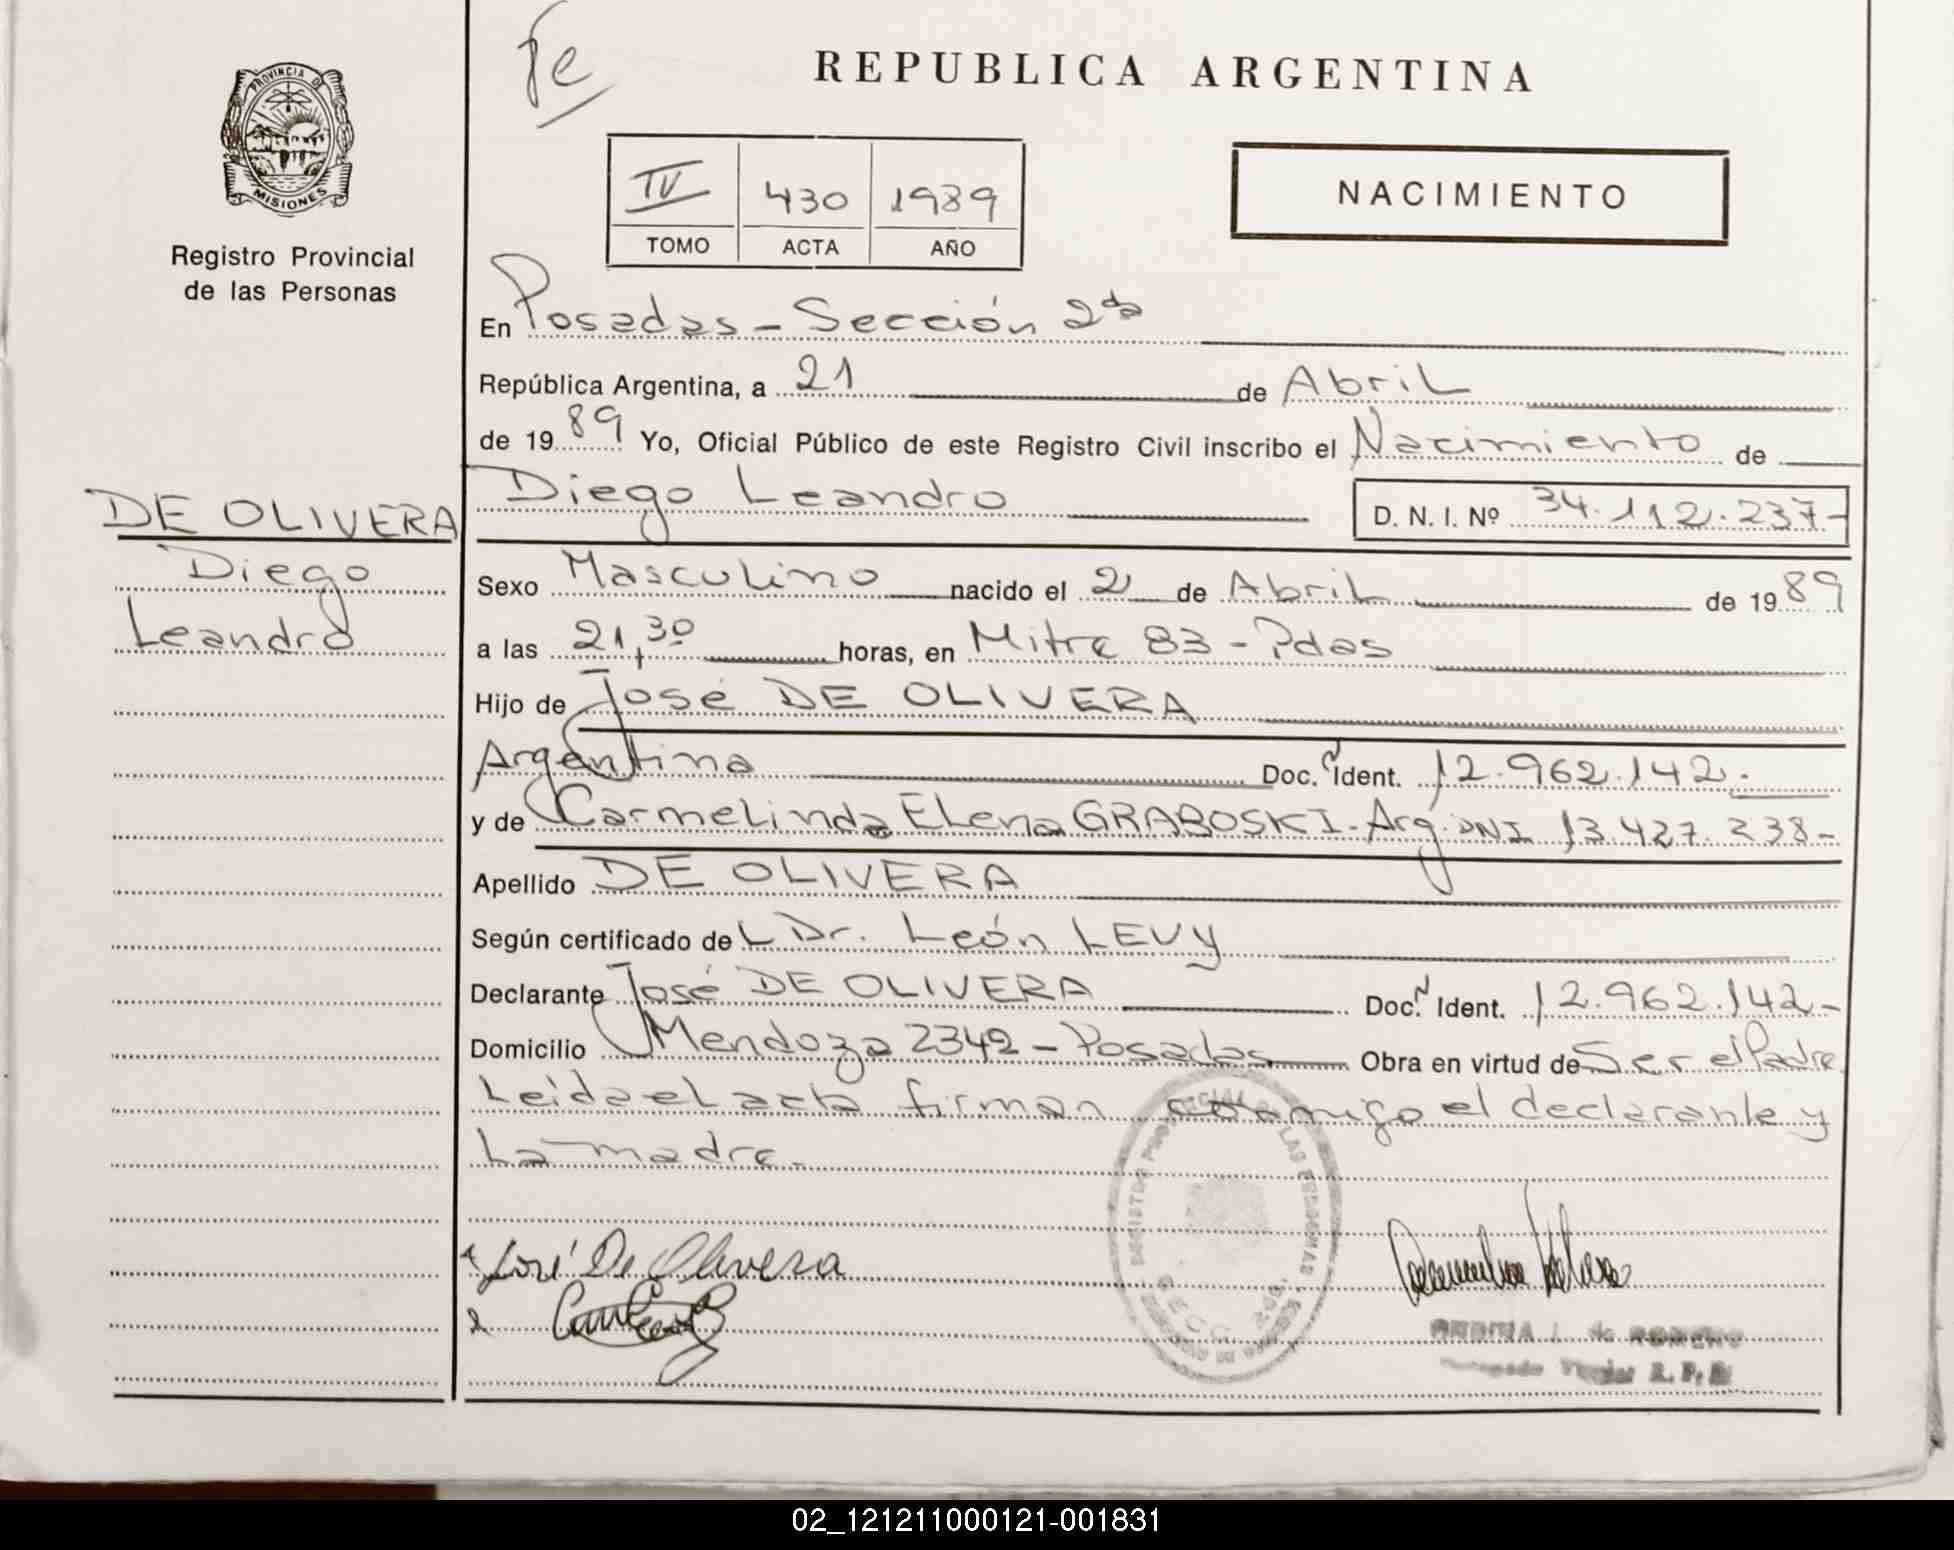 Fe
REPUBLICA ARGENTINA
PROVINCIA DE
MISIONES
Registro Provincial
de las Personas
IV 430 1989
TOMO ACTA AÑO
NACIMIENTO
En Posadas - Sección 2da
República Argentina, a 21 de Abril
de 1989 Yo, Oficial Público de este Registro Civil inscribo el Nacimiento de
Diego Leandro D. N. I. Nº 34.112.237-
DE OLIVERA
Diego
Leandro
Sexo Masculino nacido el 2 de Abril de 1989
a las 21,30 horas, en Mitre 83 - Pdas
Hijo de José DE OLIVERA
Argentina Doc. Ident. 12.962.142.-
y de Carmelinda Elena GRABOSKI - Arg. DNI 13.427.238-
Apellido DE OLIVERA
Según certificado del Dr. León LEVY
Declarante José DE OLIVERA Doc. Ident. 12.962.142-
Domicilio Mendoza 2342 - Posadas Obra en virtud de Ser el Padre
Leída el acta firman conmigo el declarante y
La madre.
José De Olivera
2
de ROMERO
R. P. P.
02_121211000121-001831